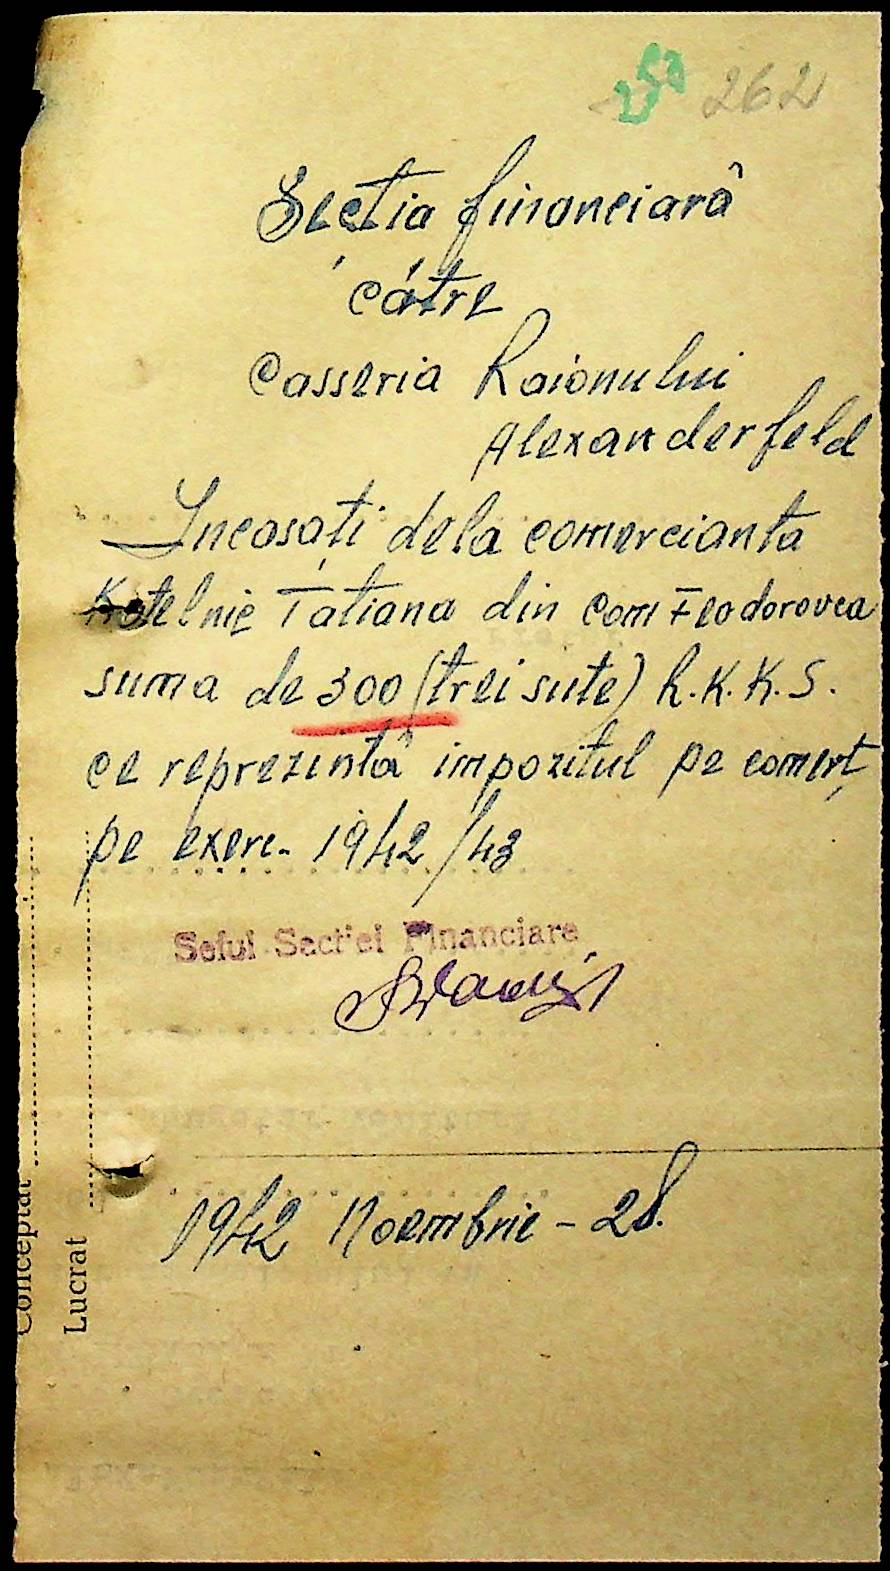 262
Secția financiară
către
Casseria Raionului
Alexanderfeld
Incasați dela comercianta
Kotelnic Tatiana din com Feodorovca
suma de 300 (trei sute) R.K.K.S.
ce reprezintă impozitul pe comerț
pe exerc. 1942/43
Seful Secției Financiare
1942 Noembrie - 28.
Conceptat
Lucrat